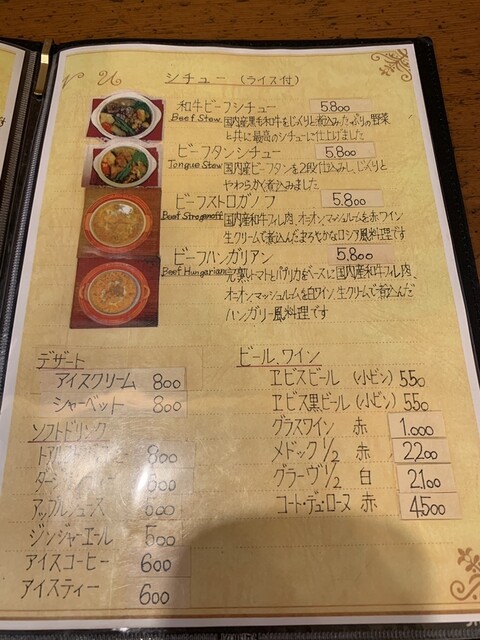 シチュー (ライス付)
和牛ビーフシチュー 5.800
Beef Stew 国内産黒毛和牛をじっくりと煮込みたっぷりの野菜
と共に最高のシチューに仕上げました
ビーフタンシチュー 5.800
Tongue Stew 国内産ビーフタンを2段仕込みし、じっくりと
やわらかく煮込みました
ビーフストロガノフ 5.800
Beef Stroganoff 国内産和牛フィレ肉、オニオン、マッシュルームを赤ワイン
生クリームで煮込んだまろやかなロシア風料理です
ビーフハンガリアン 5.800
Beef Hungarian 完熟トマトとパプリカをベースに国内産和牛フィレ肉、
オニオン、マッシュルームを白ワイン、生クリームで煮込んだ
ハンガリー風料理です
デザート
アイスクリーム 800
シャーベット 800
ソフトドリンク
800
600
アップルジュース 600
ジンジャーエール 500
アイスコーヒー 600
アイスティー 600
ビール、ワイン
ヱビスビール (小ビン) 550
ヱビス黒ビール (小ビン) 550
グラスワイン 赤 1.000
メドック 1/2 赤 2.200
グラーヴ 1/2 白 2.100
コート・デュ・ローヌ 赤 4.500